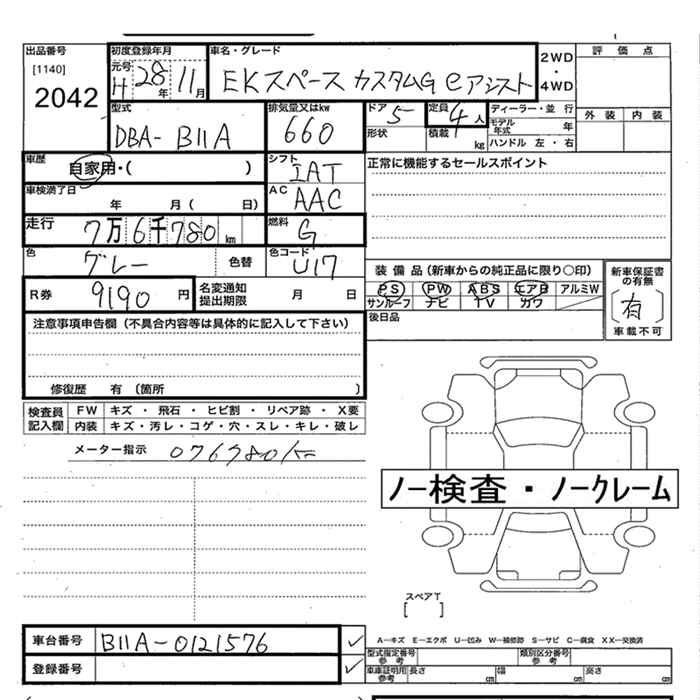 出品番号
[1140]
2042
初度登録年月
元号 H 28 年 11 月
車名・グレード
EKスペース カスタムG eアシスト
2WD
・
4WD
評価点
外装 内装
型式
DBA- B11A
排気量又はkw
660
ドア 5
形状
定員 4 人
積載 kg
ディーラー・並行
モデル年式 年
ハンドル 左・右
車歴
自家用・( )
シフト
IAT
正常に機能するセールスポイント
車検満了日
年 月( 日)
AC
AAC
走行
7万6千780km
燃料
G
色
グレー
色替
色コード
U17
装備品(新車からの純正品に限り〇印)
PS PW ABS エアB アルミW
サンルーフ ナビ TV カワ
新車保証書の有無
〔有〕
車載不可
R券 9190 円
名変通知
提出期限
月 日
後日品
注意事項申告欄(不具合内容等は具体的に記入して下さい)
修復歴 有 〔箇所 〕
検査員記入欄
FW キズ・飛石・ヒビ割・リペア跡・X要
内装 キズ・汚レ・コゲ・穴・スレ・キレ・破レ
メーター指示 076780K
ノー検査・ノークレーム
スペアT
[ ]
車台番号 B11A-0121576
登録番号
A―キズ E―エクボ U―凹み W―補修跡 S―サビ C―腐食 XX―交換済
型式指定番号 参考
類別区分番号 参考
車庫証明用 参考 長さ cm 幅 cm 高さ cm